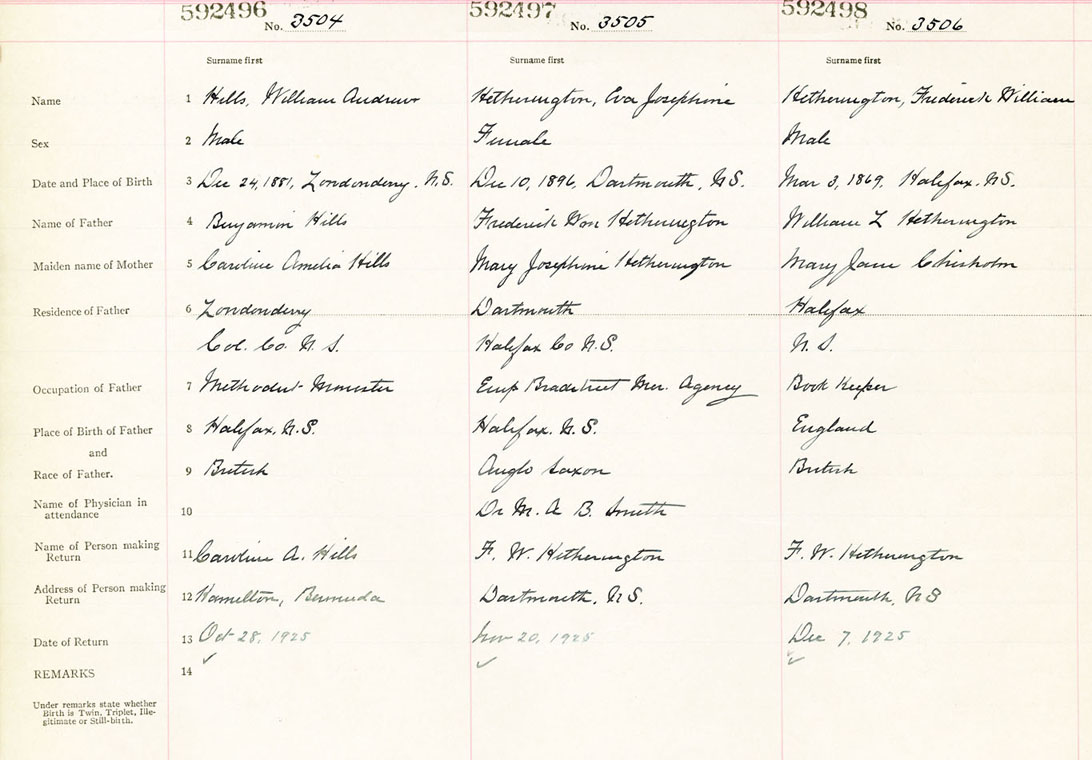 592496 592497 592498
No. 3504 No. 3505 No. 3506
Surname first Surname first Surname first
Name 1 Hills, William Andrew Hetherington, Eva Josephine Hetherington, Frederick William
Sex 2 Male Female Male
Date and Place of Birth 3 Dec 24, 1881, Londonderry. N.S. Dec 10, 1896, Dartmouth, N.S. Mar 3, 1869. Halifax. N.S.
Name of Father 4 Benjamin Hills Frederick Wm Hetherington William L Hetherington
Maiden name of Mother 5 Caroline Amelia Hills Mary Josephine Hetherington Mary Jane Chisholm
Residence of Father 6 Londonderry Dartmouth Halifax
Col. Co. N. S. Halifax Co N.S. N. S.
Occupation of Father 7 Methodist Minister Emp Bradstreet Mer. Agency Book Keeper
Place of Birth of Father 8 Halifax. N.S. Halifax. N.S. England
and
Race of Father. 9 British Anglo Saxon British
Name of Physician in
attendance 10 Dr M. A B. Smith
Name of Person making
Return 11 Caroline A. Hills F. W. Hetherington F. W. Hetherington
Address of Person making
Return 12 Hamilton, Bermuda Dartmouth, N.S. Dartmouth, NS
Date of Return 13 Oct 28, 1925 Nov 20, 1925 Dec 7, 1925
REMARKS 14
Under remarks state whether
Birth is Twin, Triplet, Ille-
gitimate or Still-birth.